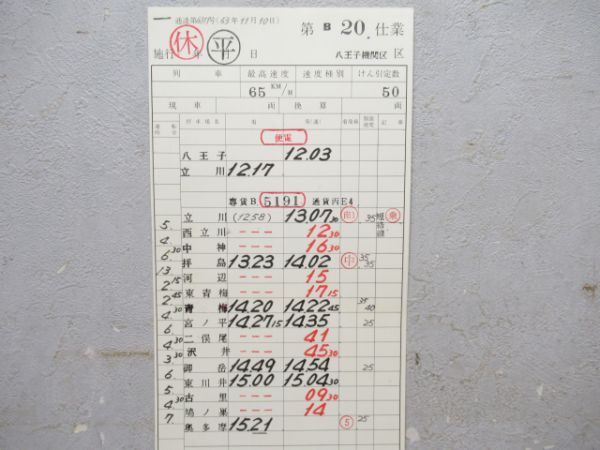 一 達達第631号(63年11月10日) 第 B 20. 仕業
休 平
施行 年 月 日 八王子機関区 区
列車 最高速度 速度種別 けん引定数
65 KM/H 50
現車 両 換算 両
停車場名 着 発(通) 着発線 制限速度 記事
便電
八王子 12.03
立川 12.17
専貨B. 5191 通貨丙E4
立川 (12.58) 13.07 30 35
5. 西立川 --- 12 30
4. 中神 --- 16 30
6.30 拝島 13.23 14.02 中 35 35
13. 河辺 --- 15
2.15 東青梅 --- 17 15
2.45 青梅 14.20 14.22 45 35 40
4.30 宮ノ平 14.27 15 14.35 25
6. 二俣尾 --- 41
4.30 沢井 --- 45 30
3. 御岳 14.49 14.54 25
6. 東川井 15.00 15.04 30
5. 古里 --- 09 30
4.30 鳩ノ巣 --- 14
7. 奥多摩 15.21 5 25